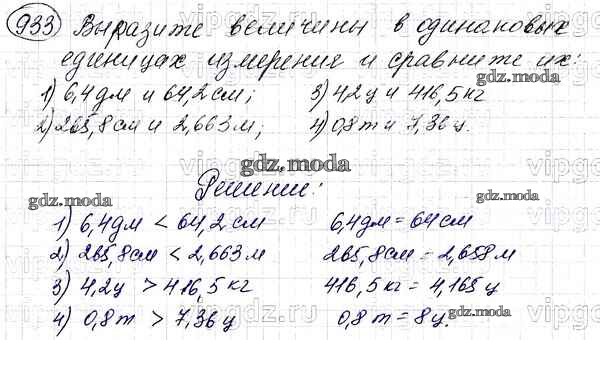 933 Выразите величины в одинаковых
единицах измерения и сравните их:
gdz.moda
1) 6,4дм и 64,2см; 3) 4,2ц и 416,5кг
2) 265,8см и 2,663м; 4) 0,8т и 7,36ц.
gdz.moda
Решение:
gdz.moda gdz.moda
1) 6,4дм < 64,2см 6,4дм = 64см
2) 265,8см < 2,663м 265,8см = 2,658м
3) 4,2ц > 416,5кг 416,5кг = 4,165ц
gdz.moda gdz.moda
4) 0,8т > 7,36ц 0,8т = 8ц.